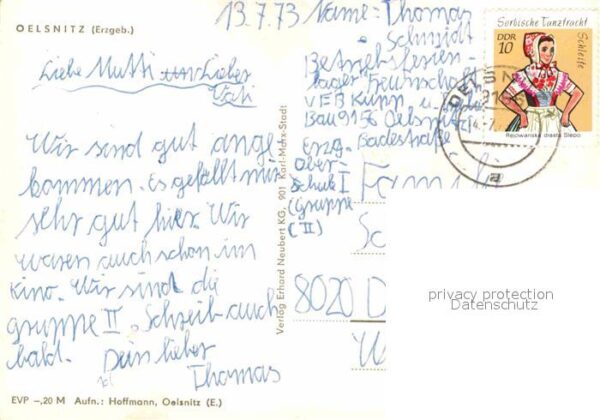 OELSNITZ (Erzgeb.)
13.7.73 Name: Thomas
Schmidt
Betriebsferien-
lager Freundschaft
VEB Kunn u.
Bau 9156 Oelsnitz
Erzg. Badestraße
Ober-
schule I
(gruppe
(II)
Sorbische Tanztracht
DDR
10
Schleife
Rejowanska drasta Slepo
OELSN
Liebe Mutti und Lieber
Vati
Wir sind gut ange-
kommen. Es gefällt mir
sehr gut hier. Wir
waren auch schon im
Kino. Wir sind die
gruppe II. Schreib auch
bald. Dein lieber
Thomas
Famili
Sc
8020 D
W
privacy protection
Datenschutz
Verlag Erhard Neubert KG, 901 Karl-Marx-Stadt
EVP –,20 M Aufn.: Hoffmann, Oelsnitz (E.)